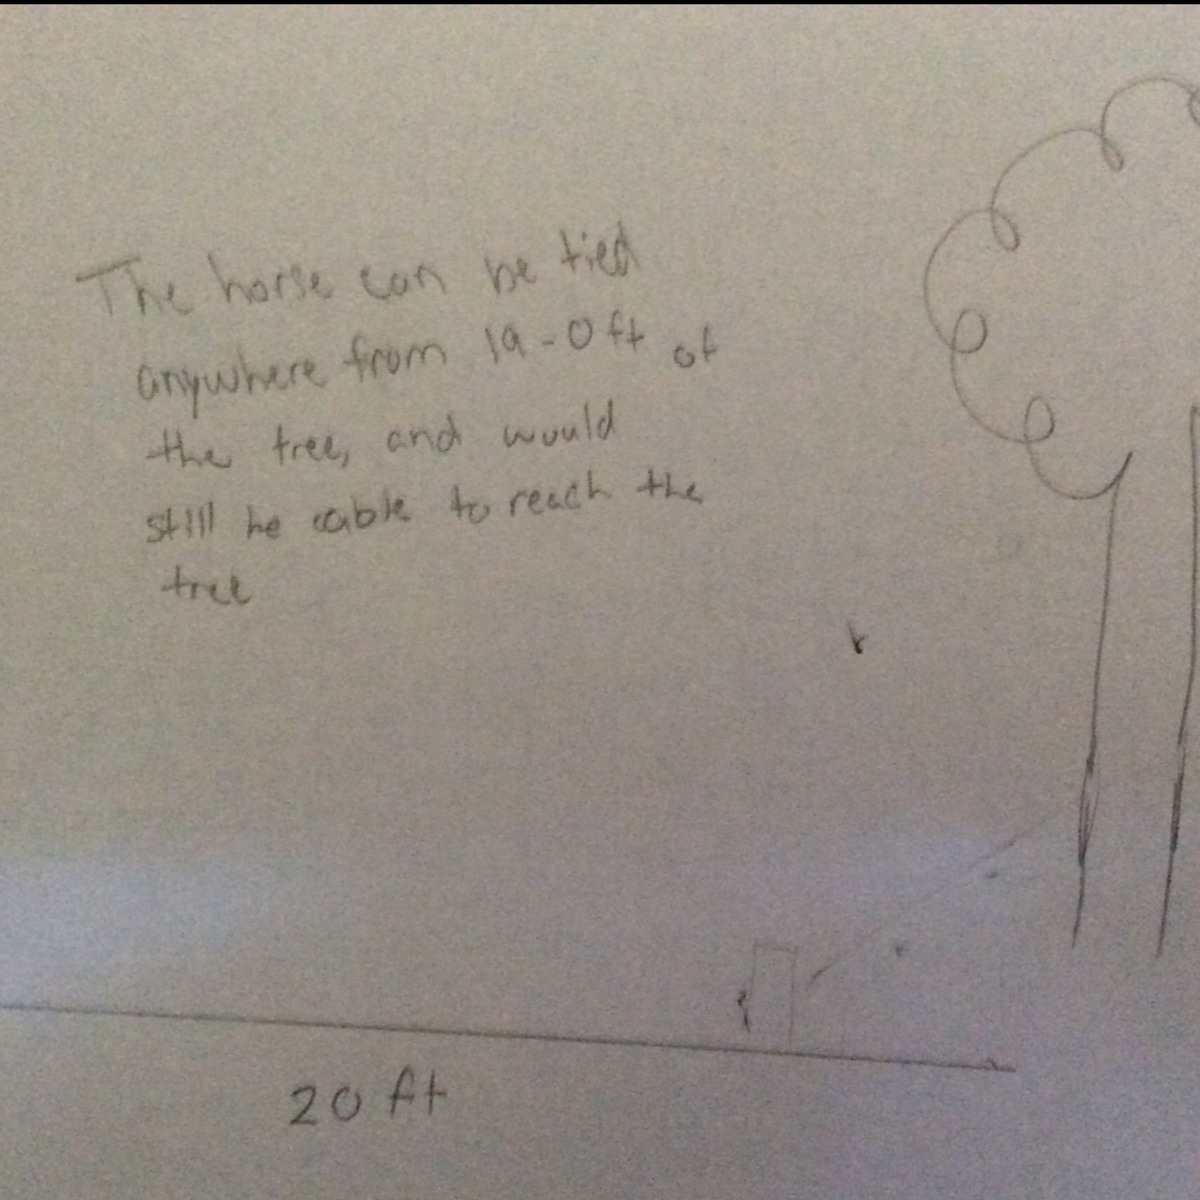 The horse can be tied
anywhere from 19-0ft of
the tree, and would
still be able to reach the
tree
20 ft